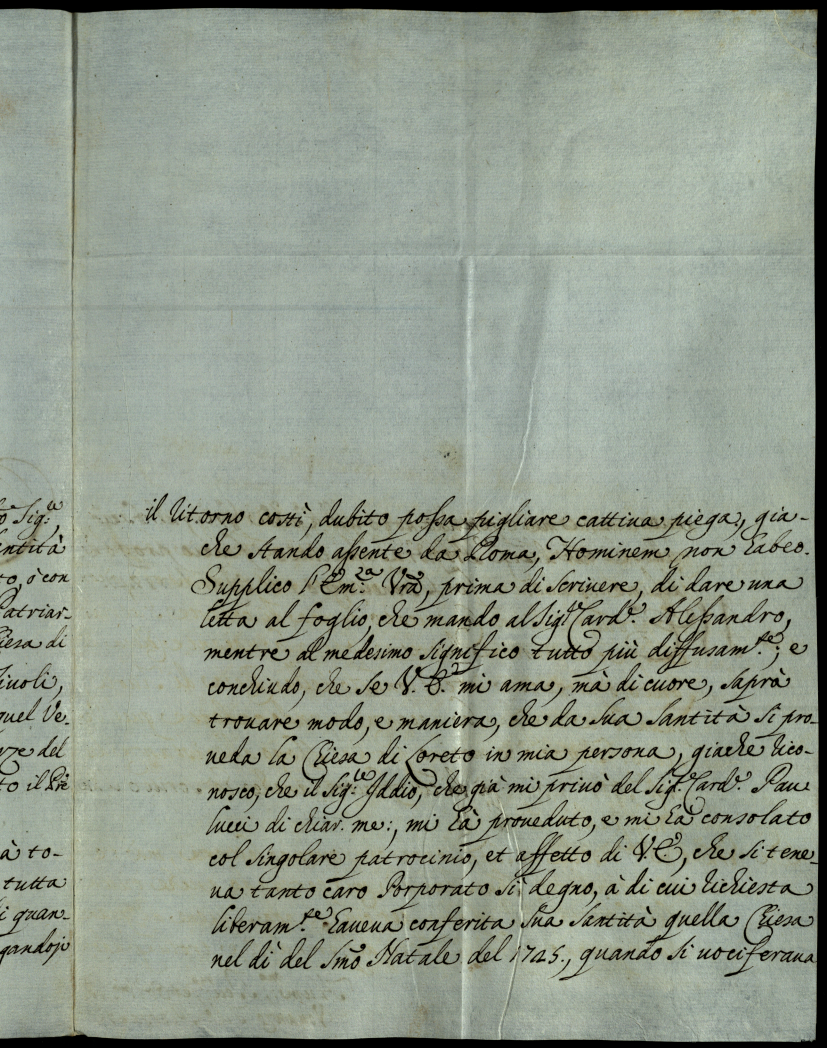 o Sig.re
antità
to, ò con
Patriar-
iesa di
ivoli,
quel Ve-
rze del
to il Prè
à to-
tutta
i quan-
gandosi
il ritorno costì, dubito possa pigliare cattiva piega, gia-
che stando assente da Roma, Hominem non habeo.
Supplico l'Em.za Vrã, prima di scrivere, di dare una
letta al foglio, che mando al Sig.r Card.e Alessandro,
mentre al medesimo significo tutto più diffusam.te; e
conchiudo, che se V. E. mi ama, mà di cuore, saprà
trovare modo, e maniera, che da Sua Santità si pro-
veda la Chiesa di Loreto in mia persona, giache rico-
nosco, che il Sig.re Iddio, che già mi privò del Sig.r Card.e Pau
lucci di chiar. me:, mi hà proveduto, e mi hà consolato
col singolare patrocinio, et affetto di V E, che si tene-
va tanto caro Porporato sì degno, à di cui richiesta
liberam.te haveva conferita Sua Santità quella Chiesa
nel dì del Smõ Natale del 1725., quando si vociferava